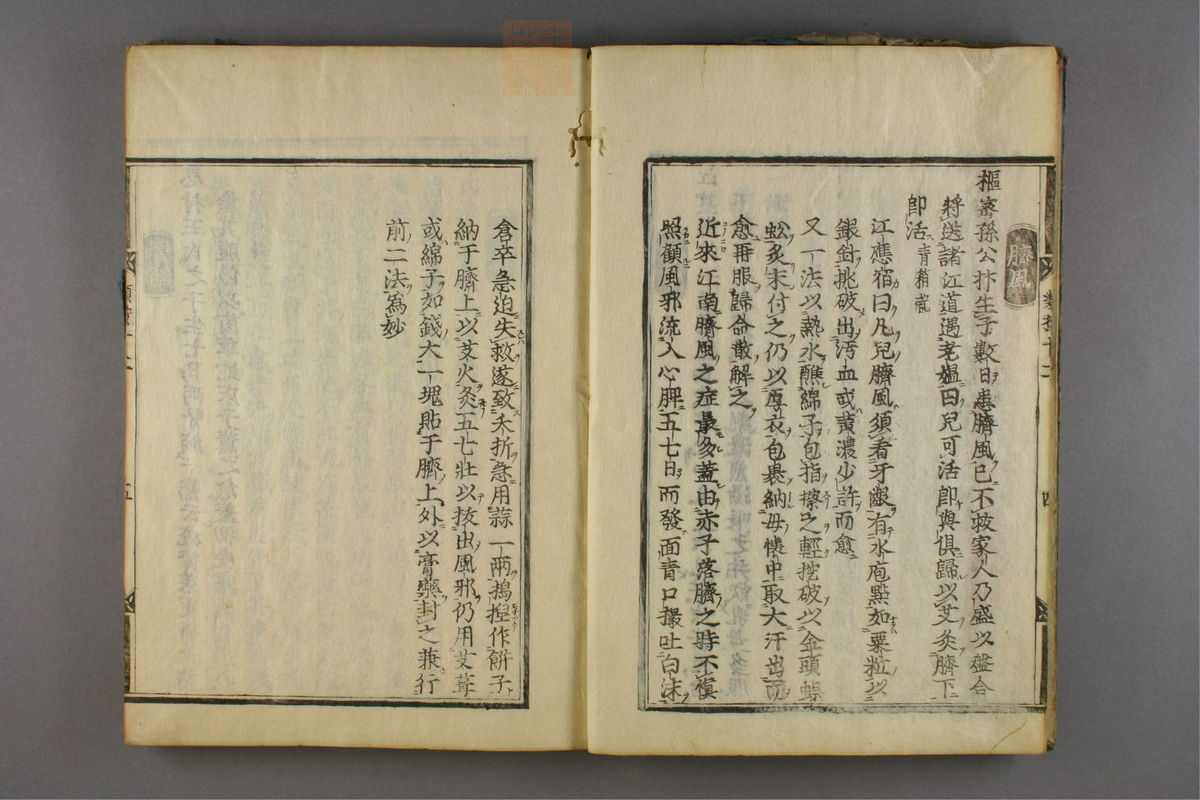 臍風
樞宻孫公抃生子數日患臍風已不救家人乃盛以盤合
將送諸江道遇老媼曰兒可活即與俱歸以艾灸臍下
即活青箱記
江應宿曰凡兒臍風須看牙齦有水庖點如粟粒以
銀針挑破出汚血或黃濃少許而愈
又一法以熱水蘸綿子包指擦之輕挖破以金頭蜈
蚣炙末付之仍以厚衣包裹納母懷中取大汗出而
愈再服歸命散解之
近來江南臍風之症最多蓋由赤子落臍之時不愼
照顧風邪流入心脾五七日而發面青口撮吐白沫
四
倉卒急迫失救遂致夭折急用蒜一兩搗揑作餅子
納于臍上以艾火灸五七壯以拔出風邪仍用艾茸
或綿子如錢大一塊貼于臍上外以膏藥封之兼行
前二法爲妙
五